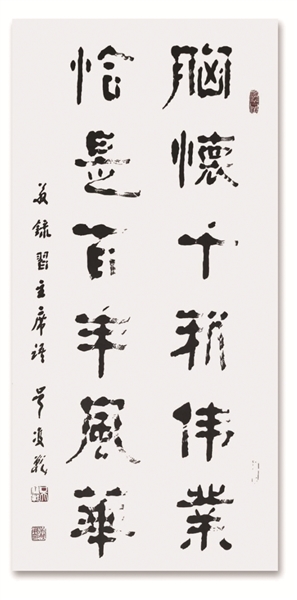 胸懷千秋偉業
恰是百年風華
錄習主席